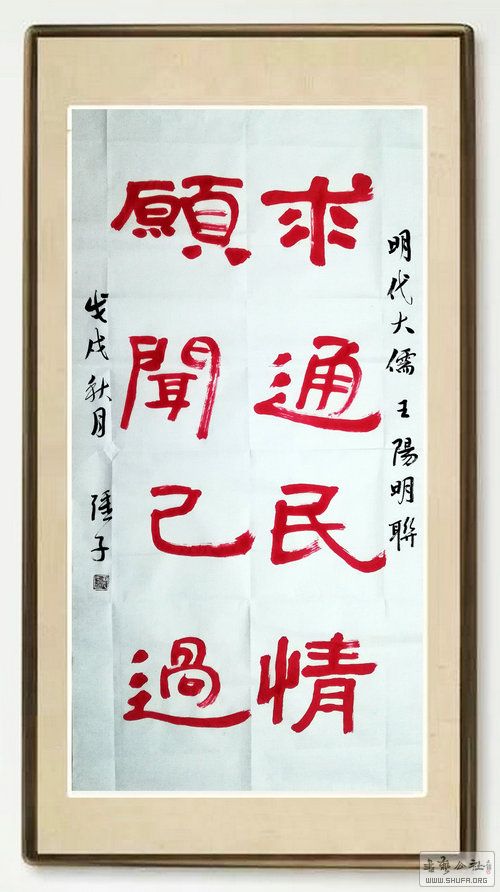 明代大儒王陽明聯
求通民情
願聞己過
戊戌秋月
子
WWW.SHUFA.ORG